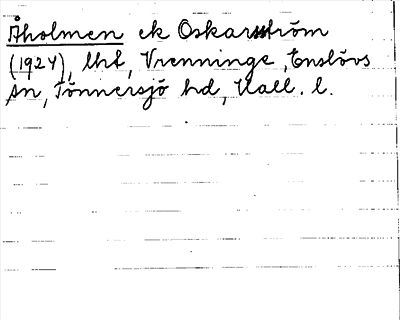 Åholmen ek Oskarström
(1924), lht, Vrenninge, Enslövs
sn, Tönnersjö hd, Hall. l.